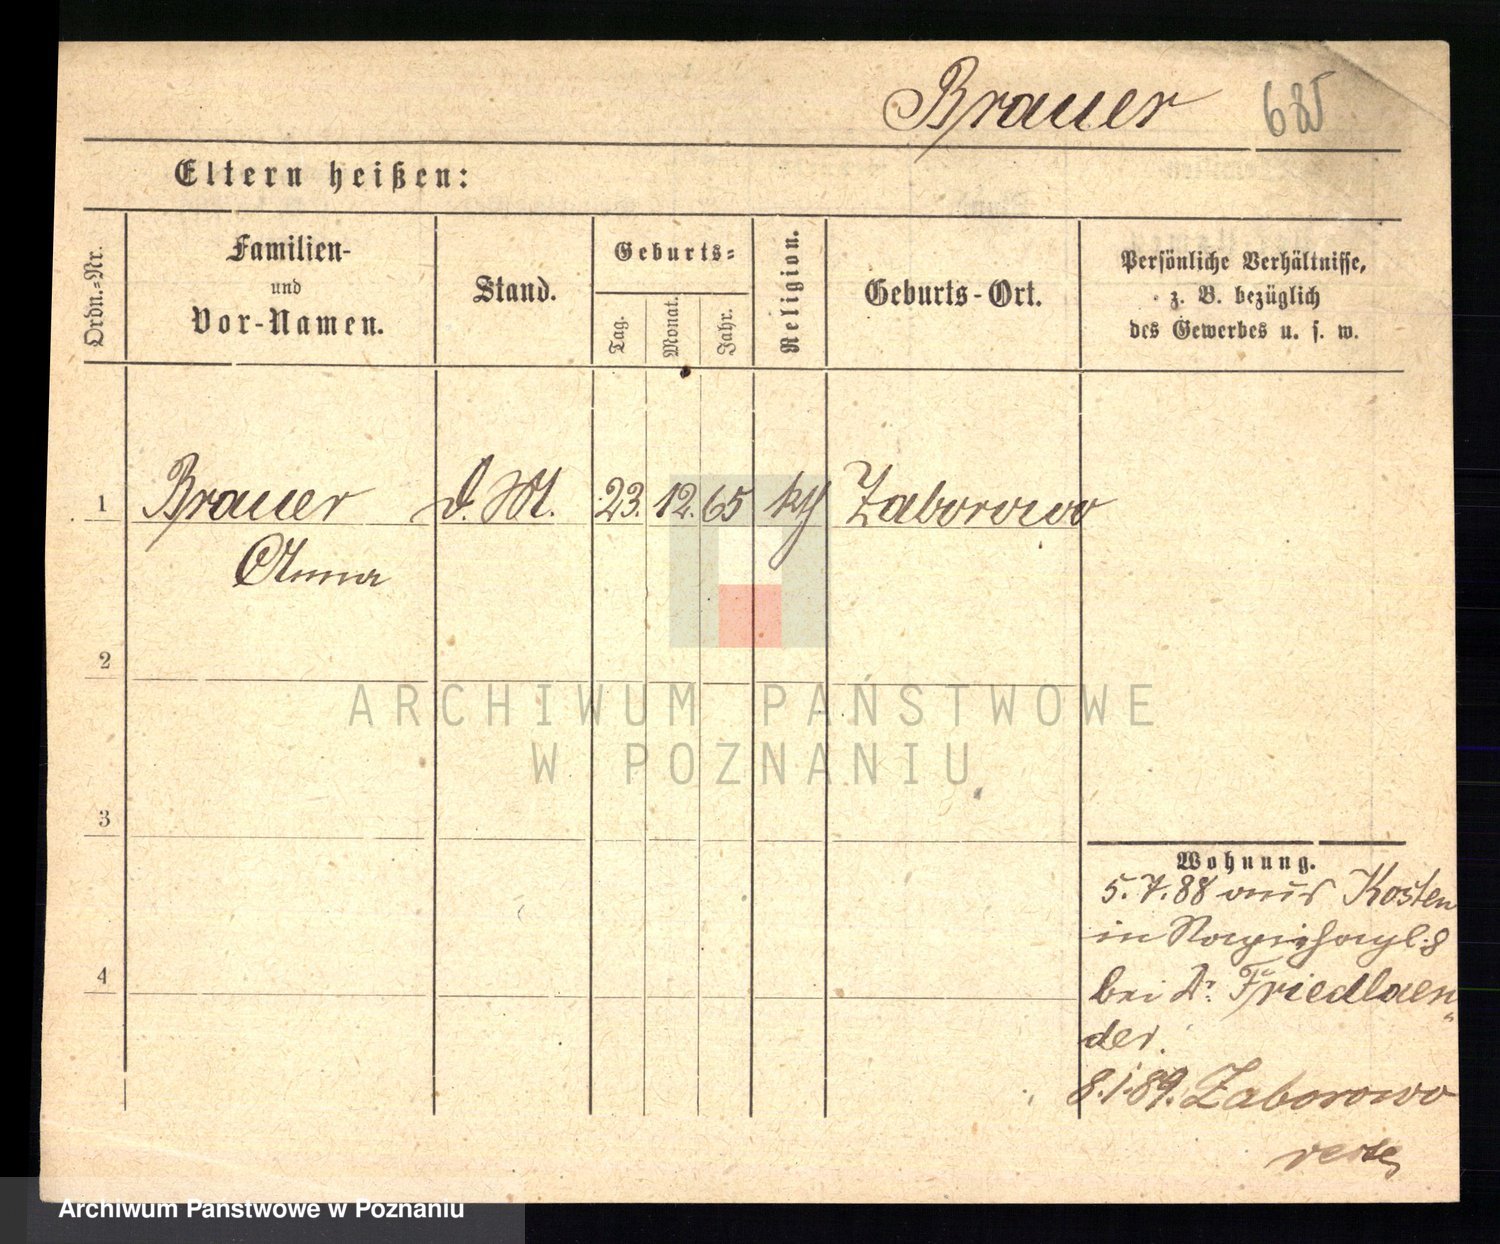 Brauer 685
Eltern heißen:
Ordn.-Nr.
Familien-
und
Vor-Namen.
Stand.
Geburts-
Tag.
Monat.
Jahr.
Religion.
Geburts-Ort.
Persönliche Verhältnisse,
z. B. bezüglich
des Gewerbes u. s. w.
1 Brauer d. M. 23. 12. 65 kth Zaborowo
Anna
2
ARCHIWUM PAŃSTWOWE
W POZNANIU
3
4
Wohnung.
5.7.88 aus Kosten
in
bei Dr. Friedlaen
der.
8.1.89. Zaborowo
Archiwum Państwowe w Poznaniu